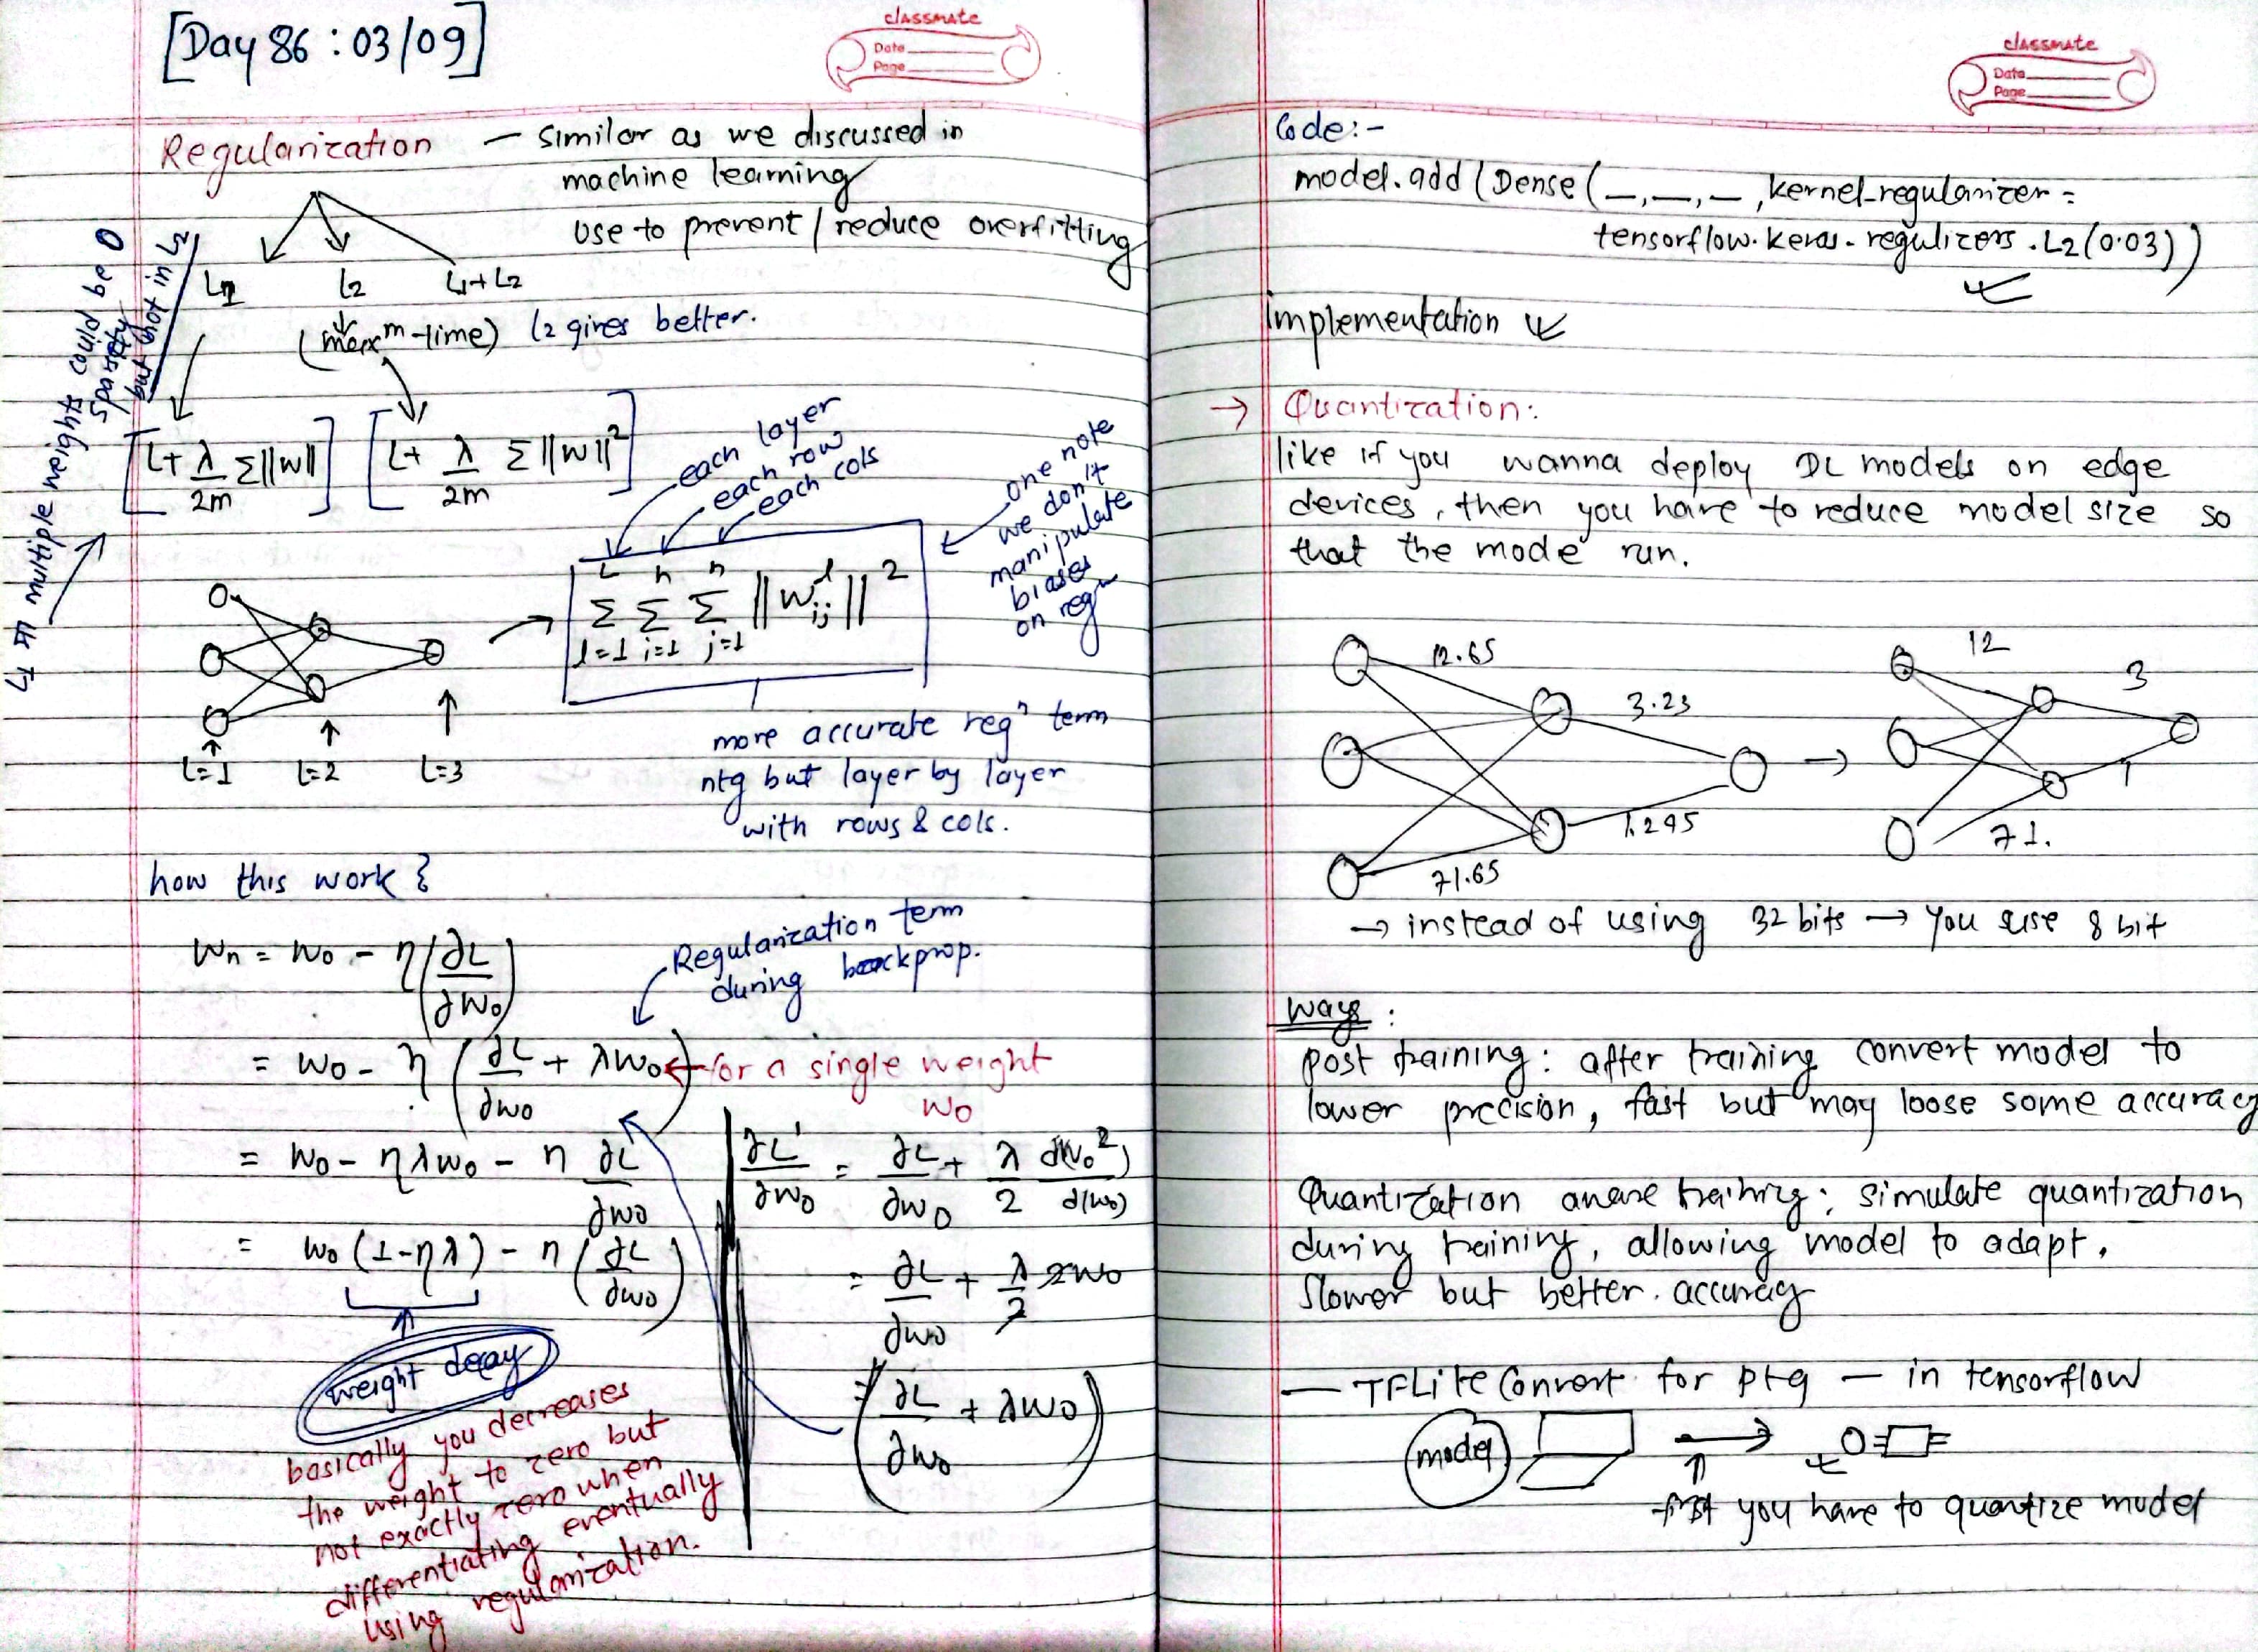 [Day 86 : 03/09]
classmate
Date
Page
Regularization — similar as we discussed in
machine learning
use to prevent / reduce overfitting
L1 L2 L1+L2
(maxm-time) L2 gives better.
[L+ λ/2m Σ||w||] [L+ λ/2m Σ||w||²]
L1 multiple weights could be 0
sparsity
but not in L2
each layer
each row
each cols
L n n
Σ Σ Σ ||w^l_ij||²
l=1 i=1 j=1
one note
we don't
manipulate
biases
on regn
L=1 L=2 L=3
more accurate regn term
ntg but layer by layer
with rows & cols.
how this work?
Wn = W0 - η(∂L/∂W0)
Regularization term
during backprop.
= W0 - η (∂L/∂W0 + λW0) ← for a single weight
W0
= W0 - ηλW0 - η ∂L/∂W0
= W0 (1-ηλ) - η (∂L/∂W0)
weight decay
basically you decreases
the weight to zero but
not exactly zero when
differentiating eventually
using regularization.
∂L'/∂W0 = ∂L/∂W0 + λ/2 d(W0²)/d(W0)
= ∂L/∂W0 + λ/2 2W0
= (∂L/∂W0 + λW0)
classmate
Date
Page
Code:-
model.add(Dense(_,_,_,kernel_regularizer =
tensorflow.keras.regulizers.L2(0.03))
implementation
→ Quantization:
like if you wanna deploy DL models on edge
devices, then you have to reduce model size so
that the mode run.
12.65 3.23 1.295 71.65
→
12 3 1 71.
→ instead of using 32 bits → you use 8 bit
Ways:
post training: after training convert model to
lower precision, fast but may loose some accuracy
Quantization aware training: simulate quantization
during training, allowing model to adapt.
Slower but better. accuracy
— TFLite Convert for ptq — in tensorflow
model →
first you have to quantize model